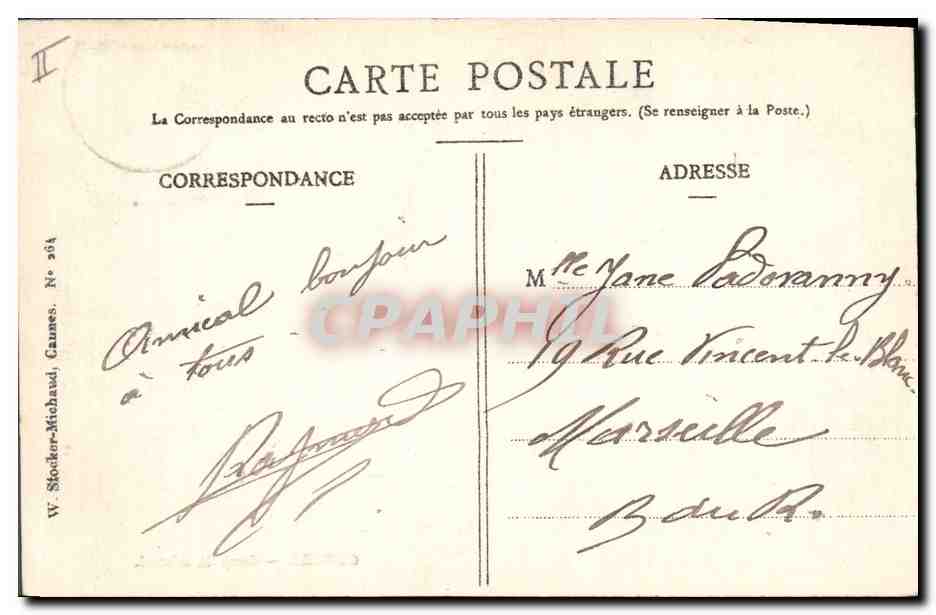 II
CARTE POSTALE
La Correspondance au recto n'est pas acceptée par tous les pays étrangers. (Se renseigner à la Poste.)
CORRESPONDANCE
Amical bonjour
à tous
Raymond
W. Stocker-Michaud, Cannes. Nº 264
ADRESSE
Mlle Jane Padovanny
19 Rue Vincent-le-Blanc
Marseille
B du R.
CPAPHIL